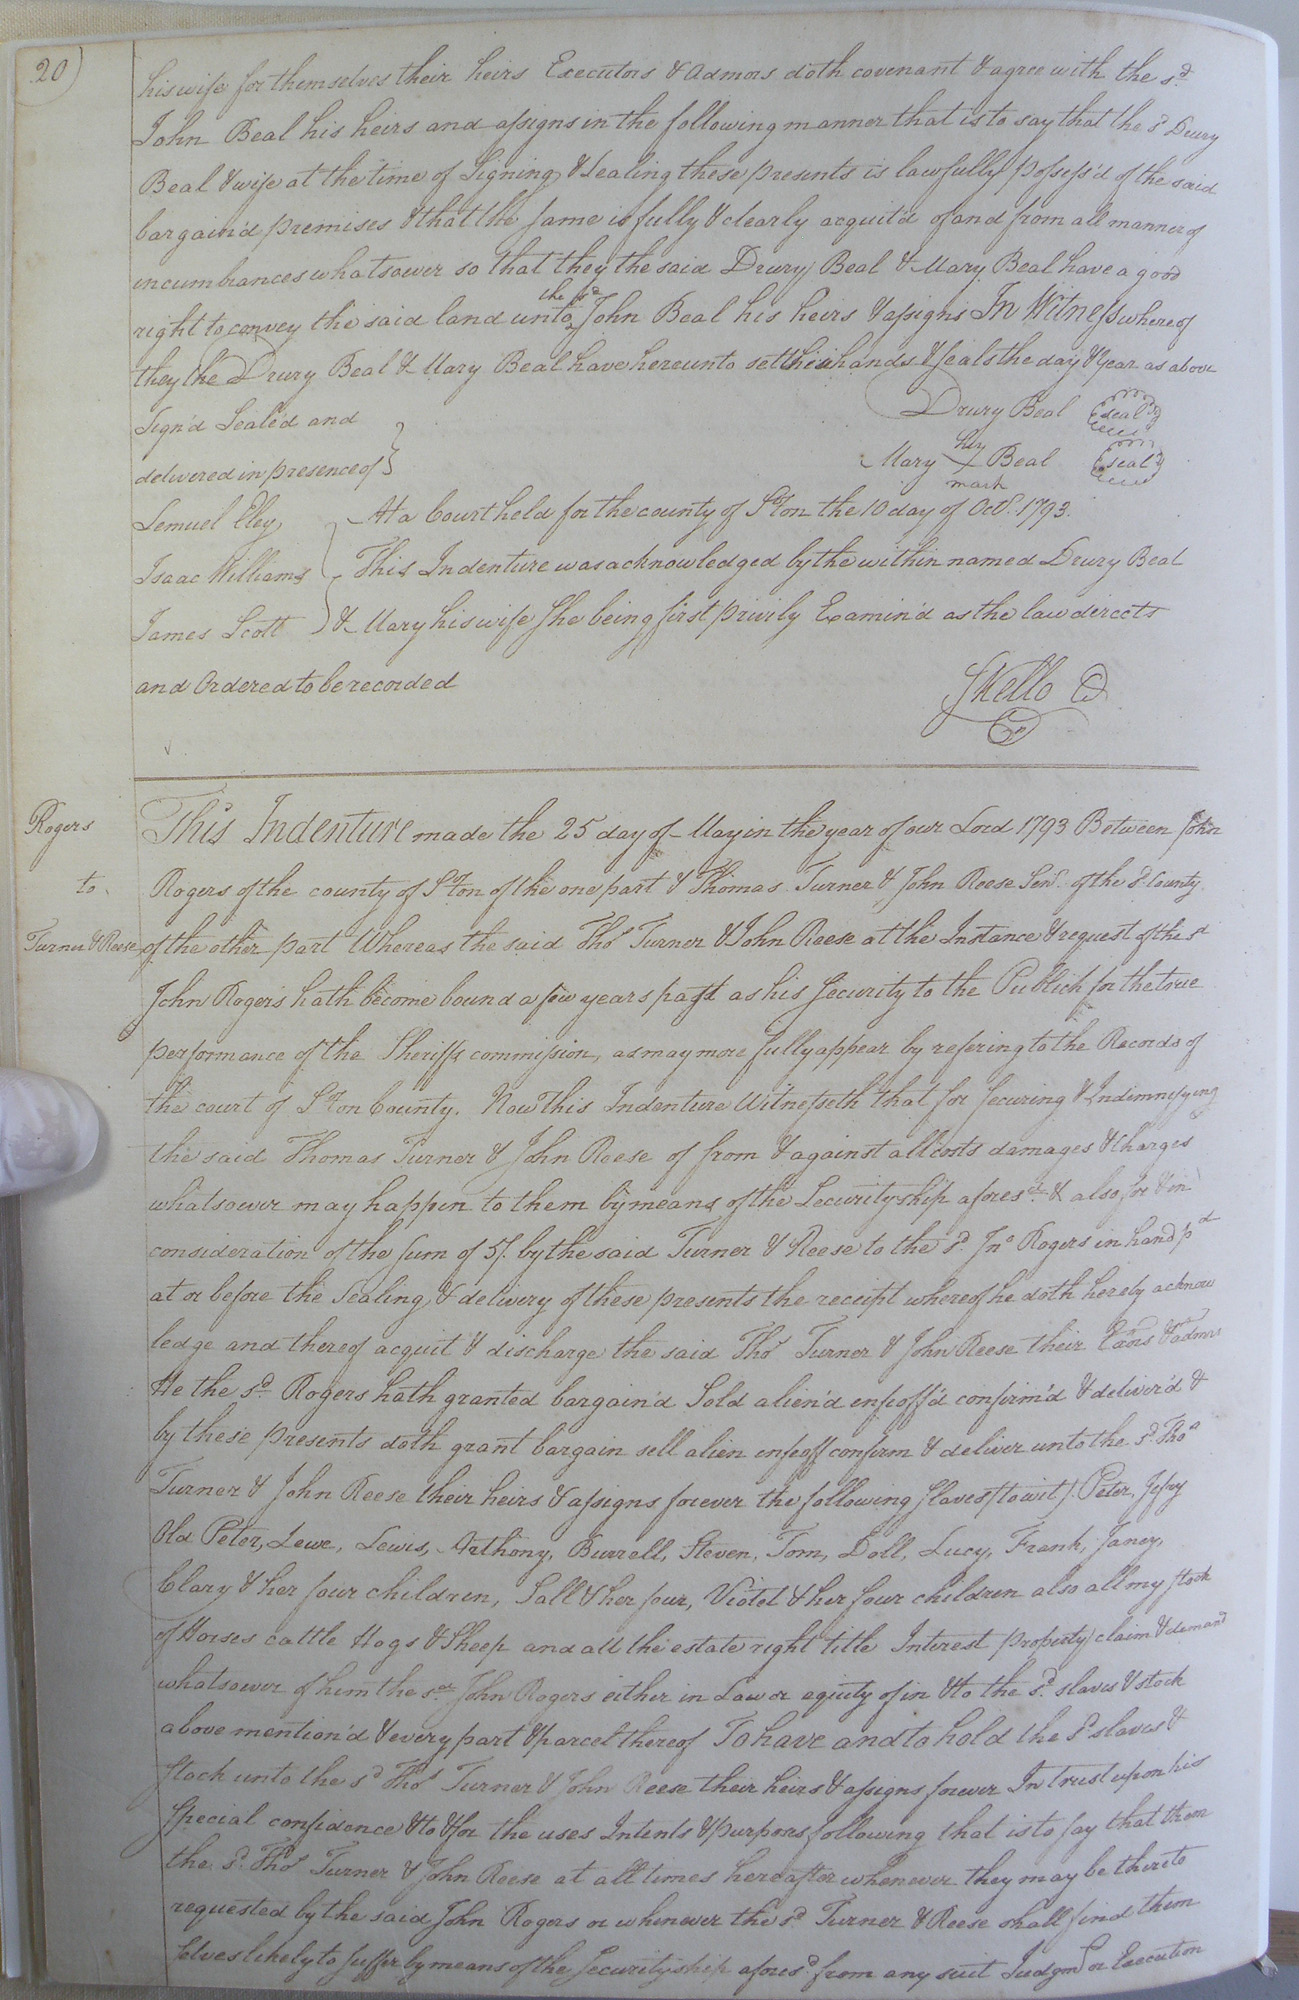 20)
his wife for themselves their heirs Executors & Admors doth covenant & agree with the sd.
John Beal his heirs and assigns in the following manner that is to say that the sd Drury
Beal & wife at the time of Signing & Sealing these presents is lawfully possess'd of the said
bargain'd premises & that the same is fully & clearly acquit'd of and from all manner of
incumbrances whatsoever so that they the said Drury Beal & Mary Beal have a good
right to convey the said land unto the sd John Beal his heirs & assigns In Witness whereof
they the Drury Beal & Mary Beal have hereunto set their hands & seals the day & year as above
Sign'd Seal'd and
delivered in presence of }
Drury Beal (seal)
Mary her X mark Beal (seal)
Lemuel Eley,
Isaac Williams
James Scott
At a Court held for the county of S.ton the 10 day of Octr. 1793.
This Indenture was acknowledged by the within named Drury Beal
& Mary his wife she being first privily Examin'd as the law directs
and Ordered to be recorded
S Kello C
Rogers
to
Turner & Reese
This Indenture made the 25 day of May in the year of our Lord 1793 Between John
Rogers of the county of S.ton of the one part & Thomas Turner & John Reese Senr. of the sd. County
of the other part Whereas the said Thos Turner & John Reese at the Instance & request of the sd
John Rogers hath become bound a few years past as his Security to the Publick for the true
performance of the Sheriffs commission, as may more fully appear by refering to the Records of
the court of S.ton County. Now This Indenture Witnesseth that for securing & Indimnifying
the said Thomas Turner & John Reese of from & against all costs damages & charges
whatsoever may happen to them by means of the Security ship aforesd. & also for & in
consideration of the sum of 5/. by the said Turner & Reese to the sd. Jno Rogers in hand pd
at or before the Sealing & delivery of these presents the receipt whereof he doth hereby acknow
ledge and thereof acquit & discharge the said Thos Turner & John Reese their Exors & admrs
He the sd. Rogers hath granted bargain'd Sold alien'd enfeoff'd confirm'd & deliver'd &
by these presents doth grant bargain sell alien enfeoff confirm & deliver unto the sd. Thos
Turner & John Reese their heirs & assigns forever the following slaves (to wit). Peter, Jefry
Old Peter, Lewe, Lewis, Anthony, Burrell, Steven, Tom, Doll, Lucy, Frank, Janey,
Clary & her four children, Sall & her four, Violet & her four children also all my stock
of Horses cattle Hogs & Sheep and all the estate right title Interest property claim & demand
whatsoever of him the sd. John Rogers either in Law or equity of in & to the sd. slaves & stock
above mention'd & every part & parcel thereof To have and to hold the sd slaves &
stock unto the sd Thos Turner & John Reese their heirs & assigns forever In trust upon his
special confidence & to & for the uses Intents & purposes following that is to say that them
the sd. Thos Turner & John Reese at all times hereafter whenever they may be thereto
requested by the said John Rogers or whenever the sd Turner & Reese shall find them
selves likely to suffer by means of the Security ship aforesd. from any suit Judgmt or Execution